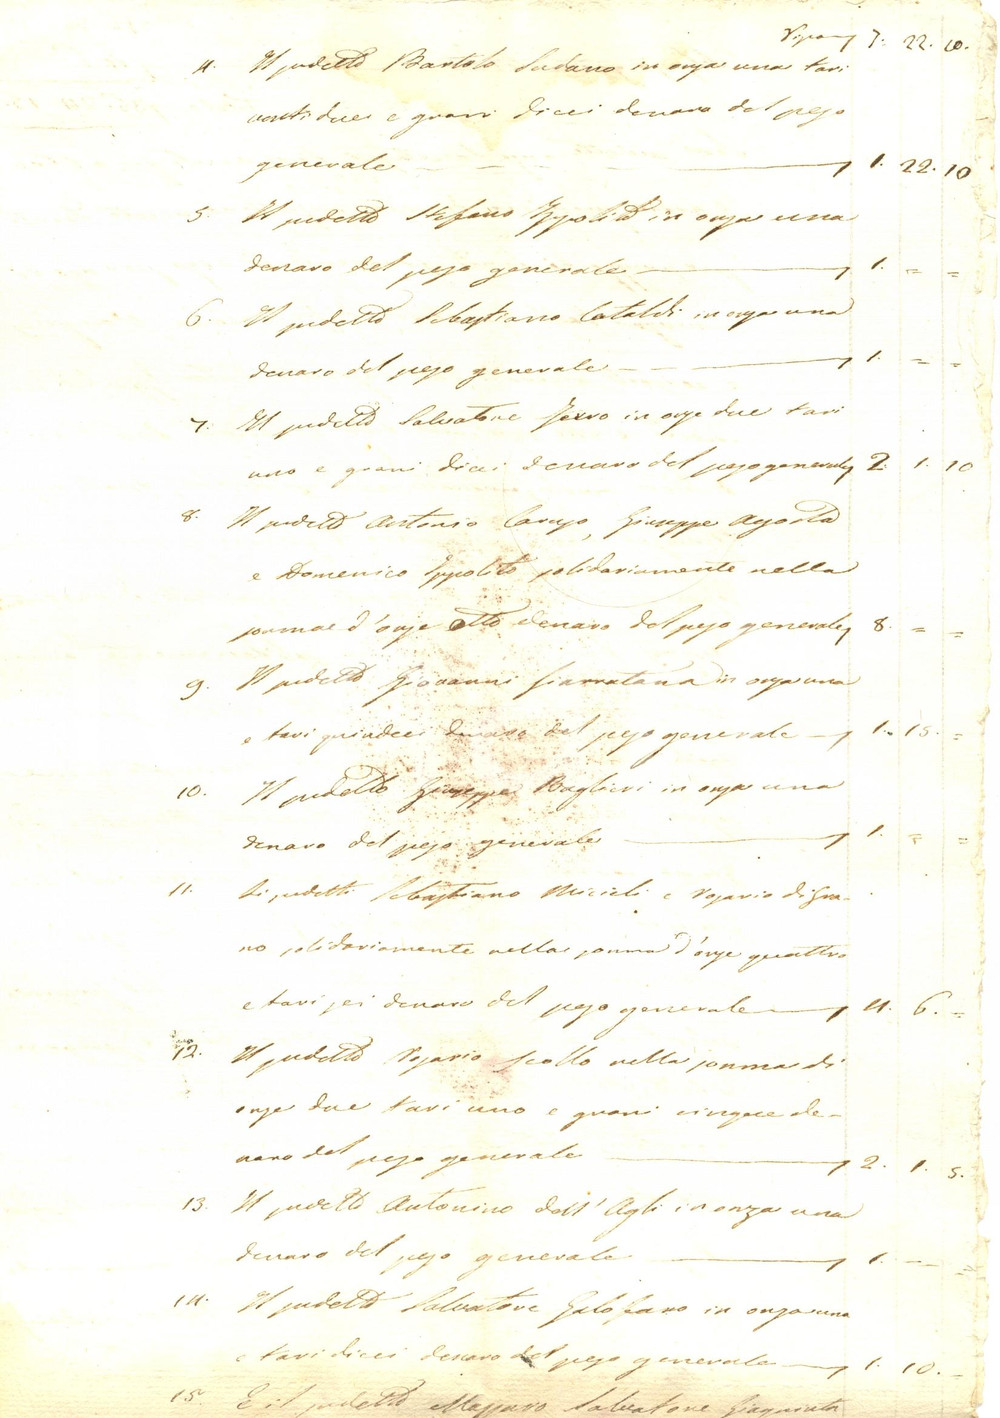 7. 22. 10.
4. Il sudetto Bartolo Sudano in onza una tarì
ventidue e grani dieci denaro del peso
generale 1. 22. 10
5. Il sudetto Stefano Ippolito in onza una
denaro del peso generale 1. = =
6. Il sudetto Sebastiano Cataldi in onza una
denaro del peso generale 1. = =
7. Il sudetto Salvatore in onze due tarì
uno e grani dieci denaro del peso generale 2. 1. 10
8. Il sudetto Antonio Caruso, Giuseppe Agosta
e Domenico Ippolito solidariamente nella
somma d'onze otto denaro del peso generale 8. = =
9. Il sudetto Giovanni Giarratana in onza una
e tarì quindeci denaro del peso generale 1. 15. =
10. Il sudetto Giuseppe Baglieri in onza una
denaro del peso generale 1. = =
11. Li sudetti Sebastiano Micieli e Rosario di Gra-
no solidariamente nella somma d'onze quattro
e tarì sei denaro del peso generale 4. 6. =
12. Il sudetto Rosario Scollo nella somma di
onze due tarì uno e grani cinque de-
naro del peso generale 2. 1. 5.
13. Il sudetto Antonino dell'Agli in onza una
denaro del peso generale 1. = =
14. Il sudetto Salvatore Galofaro in onza una
e tarì dieci denaro del peso generale 1. 10. =
15. E il sudetto Massaro Salvatore Giaquinta